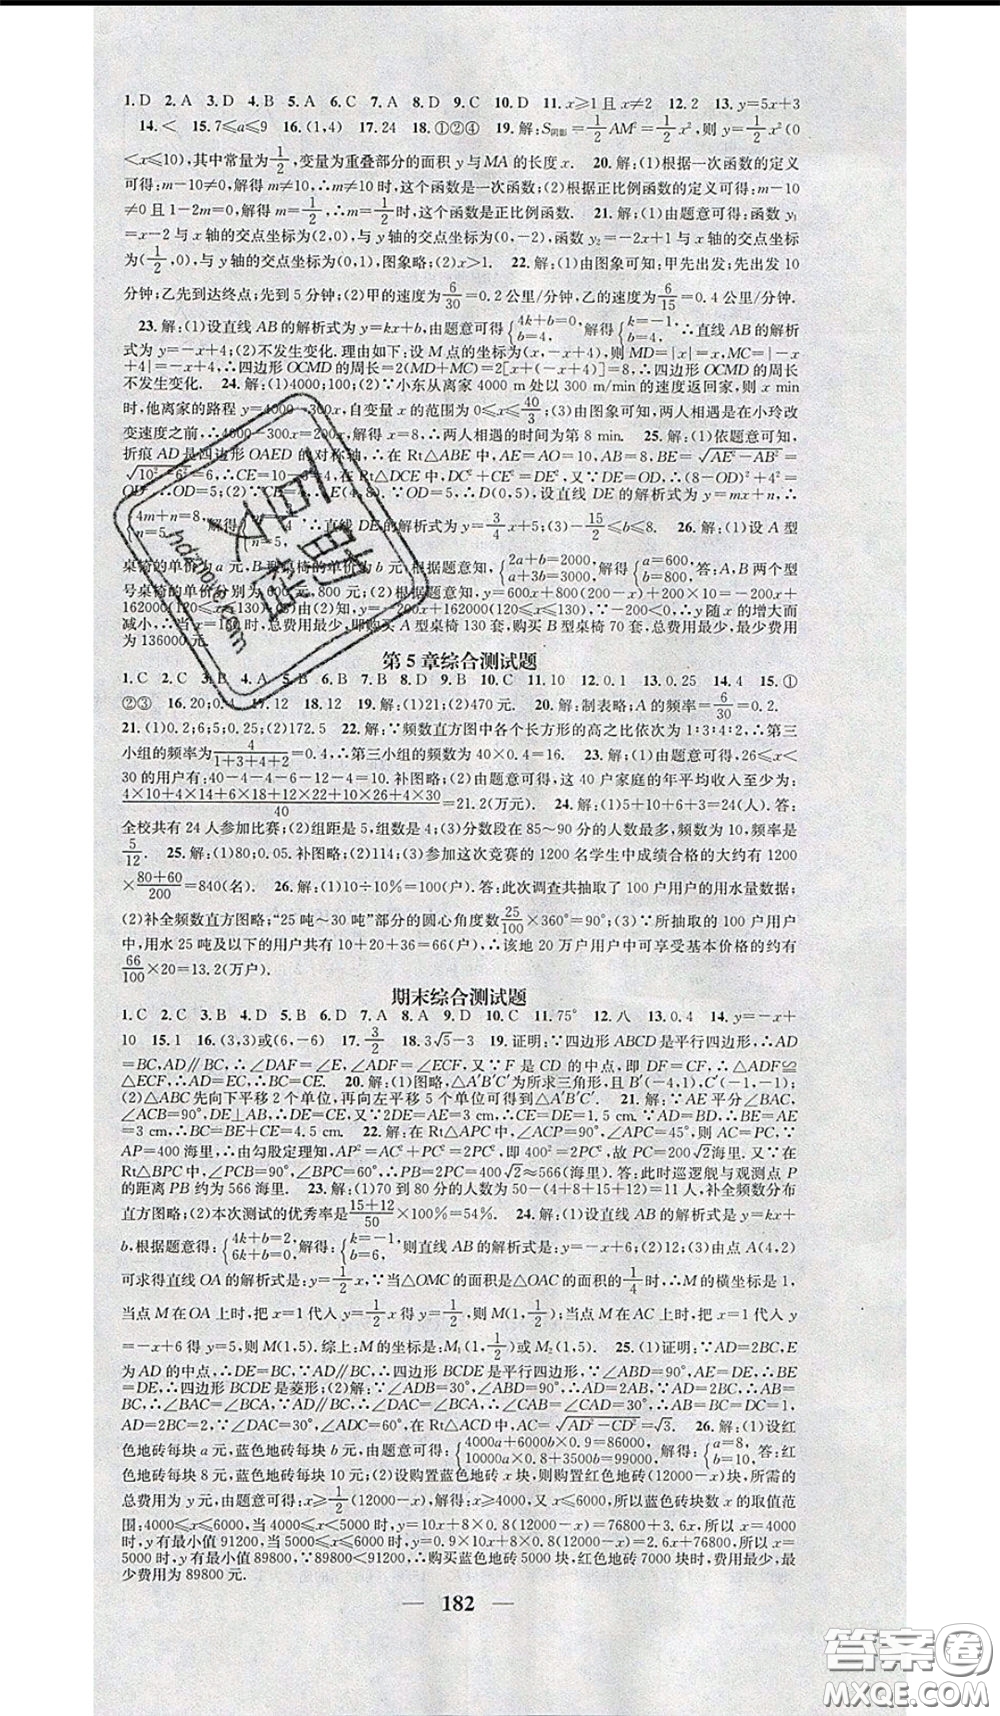 1.D 2.A 3.D 4.B 5.A 6.C 7.A 8.D 9.C 10.D 11.x≥1且x≠2 12.2 13.y=5x+3
14.< 15.7≤a≤9 16.(1,4) 17.24 18.①②④ 19.解:S阴影=1/2AM²=1/2x²,则y=1/2x²(0
<x≤10),其中常量为1/2,变量为重叠部分的面积y与MA的长度x. 20.解:(1)根据一次函数的定义
可得:m-10≠0,解得m≠10,∴m≠10时,这个函数是一次函数;(2)根据正比例函数的定义可得:m-10
≠0且1-2m=0,解得m=1/2,∴m=1/2时,这个函数是正比例函数. 21.解:(1)由题意可得:函数y₁
=x-2与x轴的交点坐标为(2,0),与y轴的交点坐标为(0,-2),函数y₂=-2x+1与x轴的交点坐标
为(1/2,0),与y轴的交点坐标为(0,1),图象略;(2)x>1. 22.解:(1)由图象可知:甲先出发;先出发10
分钟;乙先到达终点;先到5分钟;(2)甲的速度为6/30=0.2公里/分钟,乙的速度为6/15=0.4公里/分钟.
23.解:(1)设直线AB的解析式为y=kx+b,由题意可得{4k+b=0,b=4,解得{k=-1,b=4,∴直线AB的解析
式为y=-x+4;(2)不发生变化.理由如下:设M点的坐标为(x,-x+4),则MD=|x|=x,MC=|-x
+4|=-x+4,∴四边形OCMD的周长=2(MD+MC)=2[x+(-x+4)]=8,∴四边形OCMD的周长
不发生变化. 24.解:(1)4000,100;(2)∵小东从离家4000 m处以300 m/min的速度返回家,则x min
时,他离家的路程y=4000-300x,自变量x的范围为0≤x≤40/3;(3)由图象可知,两人相遇是在小玲改
变速度之前,∴4000-300x=200x,解得x=8,∴两人相遇的时间为第8 min. 25.解:(1)依题意可知,
折痕AD是四边形OAED的对称轴,∴在Rt△ABE中,AE=AO=10,AB=8,BE=√AE²-AB²=
√10²-6²=6,∴CE=10-6=4,在Rt△DCE中,DC²+CE²=DE²,又∵DE=OD,∴(8-OD)²+4²=
OD²,∴OD=5;(2)∵CE=4,∴E(4,8).∵OD=5,∴D(0,5),设直线DE的解析式为y=mx+n,∴
{4m+n=8,n=5,解得 ∴直线DE的解析式为y=3/4x+5;(3)-15/2≤b≤8. 26.解:(1)设A型
桌椅的单价为a元,B型桌椅的单价为b元,根据题意知,{2a+b=2000,a+3b=3000,解得{a=600,b=800,答:A,B两个型
号桌椅的单价分别为600元,800元;(2)根据题意知,y=600x+800(200-x)+200×10=-200x+
162000(120≤x≤130);(3)由(2)知,y=-200x+162000(120≤x≤130),∵-200<0,∴y随x的增大而
减小,∴当x=130时,总费用最少,即购买A型桌椅130套,购买B型桌椅70套,总费用最少,最少费用
为136000元.
第5章综合测试题
1.C 2.C 3.B 4.A 5.B 6.B 7.B 8.D 9.B 10.C 11.10 12.0.1 13.0.25 14.4 15.①
②③ 16.20;0.4 17.12 18.12 19.解:(1)21;(2)470元. 20.解:制表略;A的频率=6/30=0.2.
21.(1)0.2;6;5;0.25;(2)172.5 22.解:∵频数直方图中各个长方形的高之比依次为1:3:4:2,∴第三
小组的频率为4/1+3+4+2=0.4,∴第三小组的频数为40×0.4=16. 23.解:(1)由题意可得,26≤x<
30的用户有:40-4-4-6-12-4=10.补图略;(2)由题意可得,这40户家庭的年平均收入至少为:
4×10+4×14+6×18+12×22+10×26+4×30/40=21.2(万元). 24.解:(1)5+10+6+3=24(人).答:
全校共有24人参加比赛;(2)组距是5,组数是4;(3)分数段在85~90分的人数最多,频数为10,频率是
5/12. 25.解:(1)80;0.05.补图略;(2)114;(3)参加这次竞赛的1200名学生中成绩合格的大约有1200
×80+60/200=840(名). 26.解:(1)10÷10%=100(户).答:此次调查共抽取了100户用户的用水量数据;
(2)补全频数直方图略;“25吨~30吨”部分的圆心角度数25/100×360°=90°;(3)∵所抽取的100户用户
中,用水25吨及以下的用户共有10+20+36=66(户),∴该地20万用户中可享受基本价格的约有
66/100×20=13.2(万户).
期末综合测试题
1.C 2.C 3.B 4.D 5.B 6.D 7.A 8.A 9.D 10.C 11.75° 12.八 13.0.4 14.y=-x+
10 15.1 16.(3,3)或(6,-6) 17.3/2 18.3√5-3 19.证明:∵四边形ABCD是平行四边形,∴AD
=BC,AD∥BC,∴∠DAF=∠E,∠ADF=∠ECF.又∵F是CD的中点,即DF=CF,∴△ADF≌
△ECF,∴AD=EC,∴BC=CE. 20.解:(1)图略,△A′B′C′为所求三角形,且B′(-4,1),C′(-1,-1);
(2)△ABC先向下平移2个单位,再向左平移5个单位可得到△A′B′C′. 21.解:∵AE平分∠BAC,
∠ACB=90°,DE⊥AB,∴DE=CE.又∵2DE=AE=3 cm,∴CE=DE=1.5 cm.∵AD=BD,∴BE=AE
=3 cm,∴BC=BE+CE=4.5 cm. 22.解:在Rt△APC中,∠ACP=90°,∠APC=45°,则AC=PC,∵
AP=400海里,∴由勾股定理知,AP²=AC²+PC²=2PC²,即400²=2PC²,故PC=200√2海里.又∵在
Rt△BPC中,∠PCB=90°,∠BPC=60°,∴PB=2PC=400√2≈566(海里).答:此时巡逻舰与观测点P
的距离PB约为566海里. 23.解:(1)70到80分的人数为50-(4+8+15+12)=11人,补全频数分布
直方图略;(2)本次测试的优秀率是15+12/50×100%=54%. 24.解:(1)设直线AB的解析式是y=kx+
b,根据题意得:{4k+b=2,6k+b=0,解得:{k=-1,b=6,则直线AB的解析式是:y=-x+6;(2)12;(3)由点A(4,2)
可求得直线OA的解析式是:y=1/2x,∵当△OMC的面积是△OAC的面积的1/4时,∴M的横坐标是1,
当点M在OA上时,把x=1代入y=1/2x得y=1/2,则M(1,1/2);当点M在AC上时,把x=1代入y
=-x+6得y=5,则M(1,5).综上:M的坐标是:M₁(1,1/2)或M₂(1,5). 25.(1)证明:∵AD=2BC,E
为AD的中点,∴DE=BC,∵AD∥BC,∴四边形BCDE是平行四边形,∵∠ABD=90°,AE=DE,∴BE
=DE,∴四边形BCDE是菱形;(2)解:∵∠ADB=30°,∠ABD=90°,∴AD=2AB.∵AD=2BC,∴AB
=BC,∴∠BAC=∠BCA,∵AD∥BC,∴∠DAC=∠BCA,∴∠CAB=∠CAD=30°,∴AB=BC=DC=1,
AD=2BC=2,∵∠DAC=30°,∠ADC=60°,在Rt△ACD中,AC=√AD²-CD²=√3. 26.解:(1)设红
色地砖每块a元,蓝色地砖每块b元,由题意可得:{4000a+6000b×0.9=86000,10000a×0.8+3500b=99000,解得:{a=8,b=10,答:红
色地砖每块8元,蓝色地砖每块10元;(2)设购置蓝色地砖x块,则购置红色地砖(12000-x)块,所需的
总费用为y元,由题意可得:x≥1/2(12000-x),解得:x≥4000,又x≤6000,所以蓝色砖块数x的取值范
围:4000≤x≤6000,当4000≤x<5000时,y=10x+8×0.8(12000-x)=76800+3.6x,所以x=4000
时,y有最小值91200,当5000≤x≤6000时,y=0.9×10x+8×0.8(12000-x)=2.6x+76800,所以x=
5000时,y有最小值89800,∵89800<91200,∴购买蓝色地砖5000块,红色地砖7000块时,费用最少,最
少费用为89800元.
182
答案卷
MXQE.COM